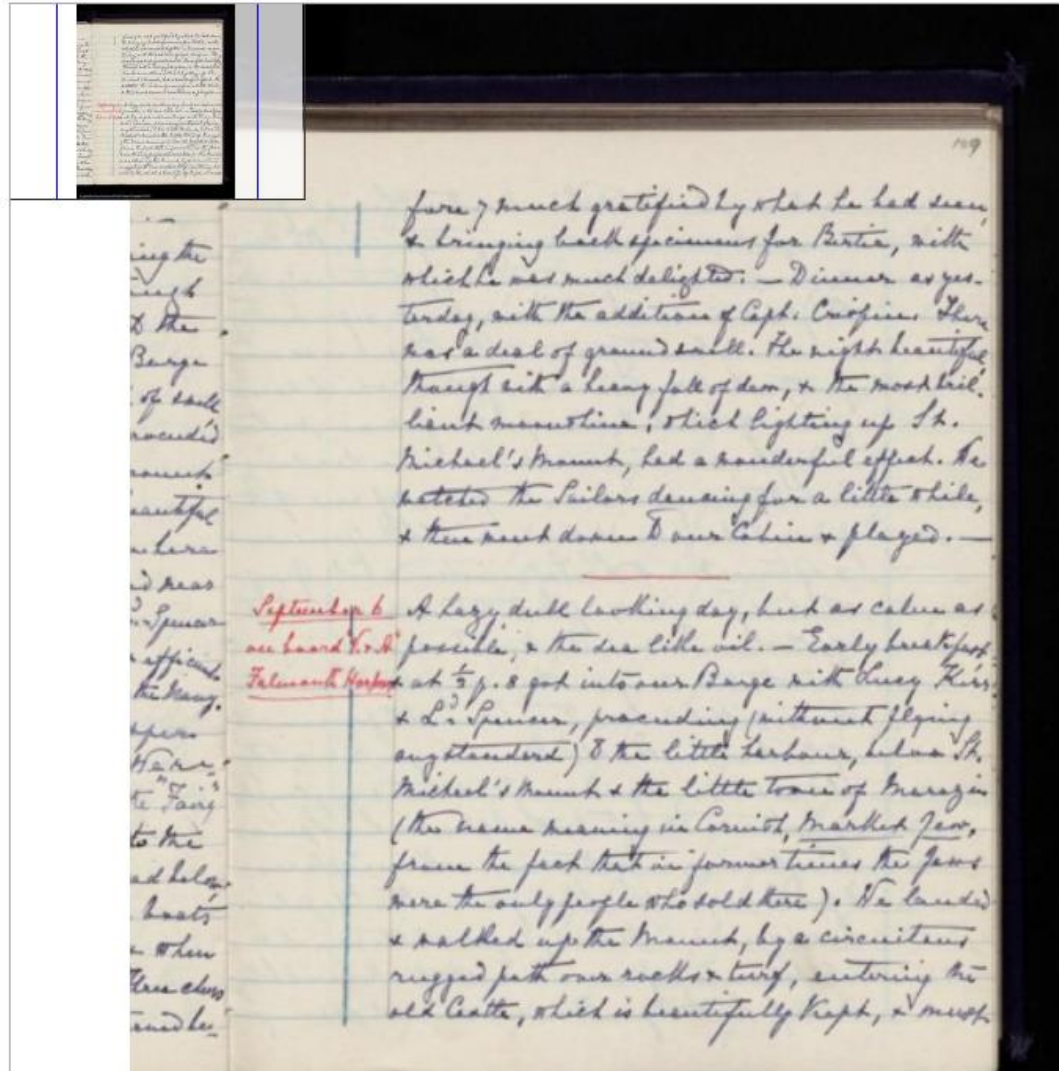 149
fore) much gratified by what he had seen,
& bringing back specimens for Bertie, with
which he was much delighted. — Dinner as yes-
terday, with the addition of Capt. Crispin. There
was a deal of ground swell. The night beautiful,
though with a heavy fall of dew, & the most bril-
liant moonshine, which lighting up St.
Michael's Mount, had a wonderful effect. We
watched the Sailors dancing for a little while,
& then went down to our Cabin & played. —
September 6
on board V. & A.
Falmouth Harbour
A hazy dull looking day, but as calm as
possible, & the sea like oil. — Early breakfast
& at ½ p. 8 got into our Barge with Lucy Kerr
& Ld. Spencer, proceeding (without flying
any standard) to the little harbour, below St.
Michael's Mount & the little town of Marazion
(the name meaning in Cornish, Market Jew,
from the fact that in former times the Jews
were the only people who sold there). We landed
& walked up the Mount, by a circuitous
rugged path over rocks & turf, entering the
old Castle, which is beautifully kept, & must
ing the
the
Barge
of small
beautiful
where
d near
Ld. Spencer
the Navy.
the Fairy
to the
boats
& when
three cheers